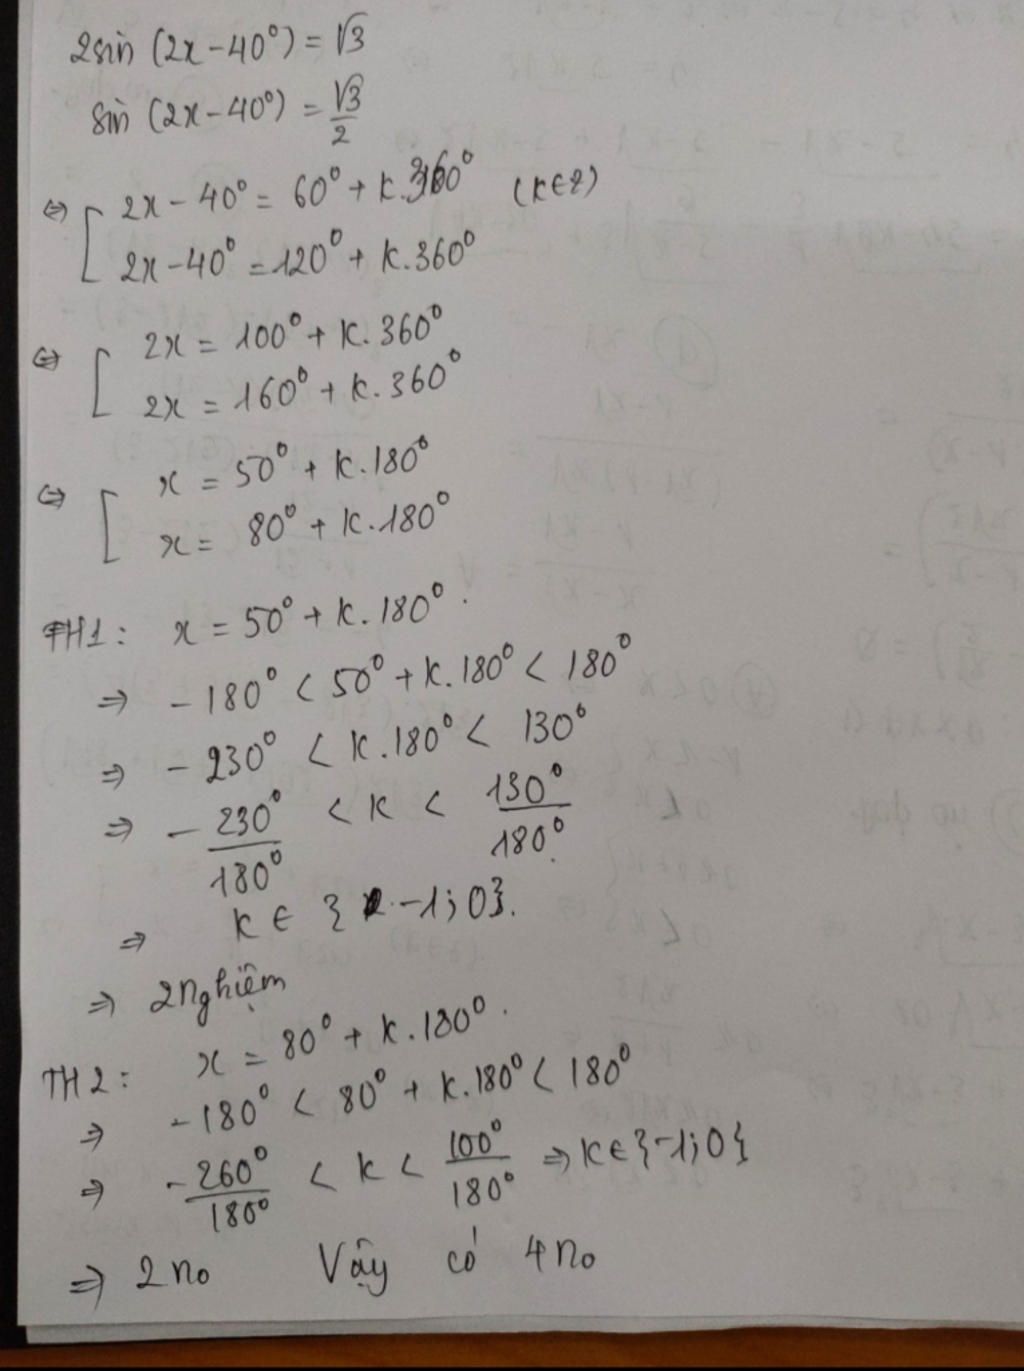 2sin (2x - 40°) = √3
sin (2x - 40°) = √3/2
⇔ [ 2x - 40° = 60° + k.360° (k∈Z)
2x - 40° = 120° + k.360°
⇔ [ 2x = 100° + k.360°
2x = 160° + k.360°
⇔ [ x = 50° + k.180°
x = 80° + k.180°
TH1: x = 50° + k.180°.
⇒ -180° < 50° + k.180° < 180°
⇒ -230° < k.180° < 130°
⇒ -230°/180° < k < 130°/180°
⇒ k ∈ {-1; 0}.
⇒ 2 Nghiệm
TH2: x = 80° + k.180°.
⇒ -180° < 80° + k.180° < 180°
⇒ -260°/180° < k < 100°/180° ⇒ k∈{-1; 0}
⇒ 2 no Vậy có 4 no